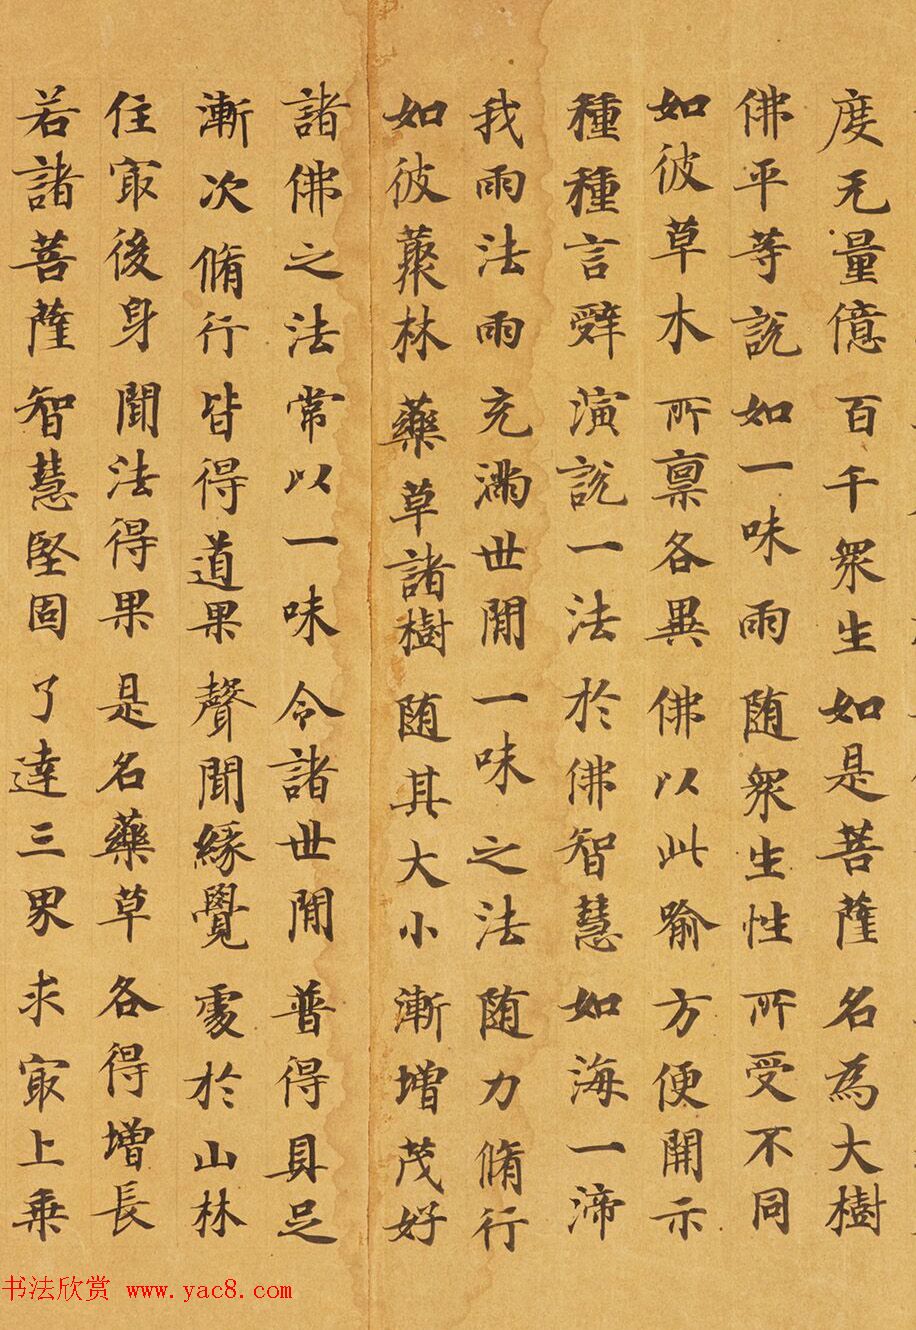 度无量億 百千衆生 如是菩薩 名為大樹
佛平等說 如一味雨 随衆生性 所受不同
如彼草木 所禀各異 佛以此喻 方便開示
種種言辭 演說一法 於佛智慧 如海一渧
我雨法雨 充滿世間 一味之法 随力脩行
如彼藂林 藥草諸樹 随其大小 漸增茂好
諸佛之法 常以一味 令諸世間 普得具足
漸次脩行 皆得道果 聲聞緣覺 處於山林
住冣後身 聞法得果 是名藥草 各得增長
若諸菩薩 智慧堅固 了達三界 求冣上乗
书法欣赏 www.yac8.com